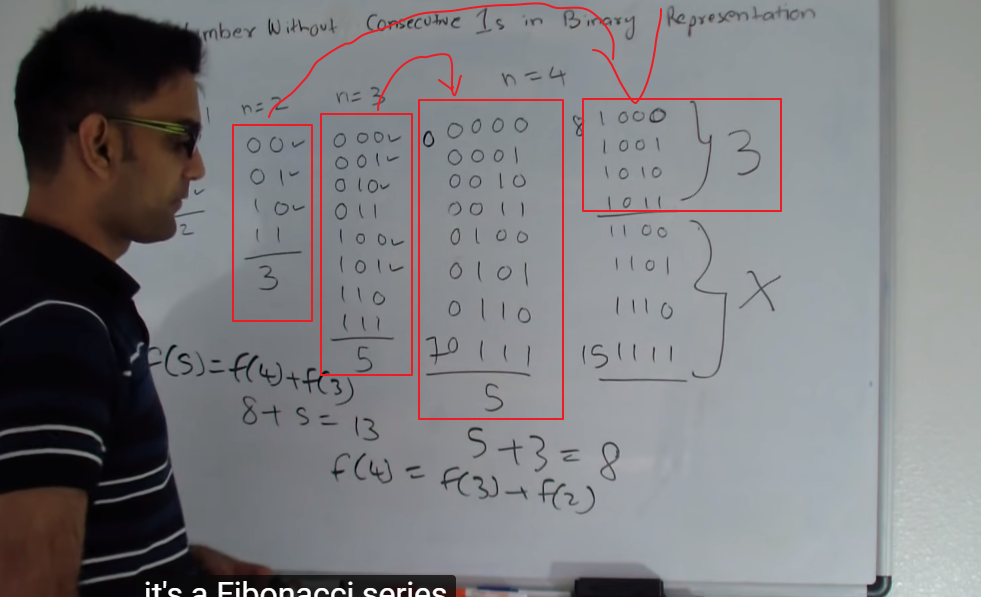 mber Without Consecutive 1s in Binary Representation
1
n=2
00
01
10
11
3
2
n=3
000
001
010
011
100
101
110
111
5
n=4
0 0000
0001
0010
0011
0100
0101
0110
7 0111
5
8 1000
1001
1010
1011
3
1100
1101
1110
15 1111
X
f(5)=f(4)+f(3)
8+5=13
5+3=8
f(4)=f(3)+f(2)
it's a Fibonacci series